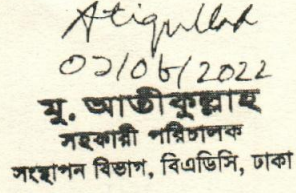 Atiqullah
07/06/2022
মু. আতীকুল্লাহ
সহকারী পরিচালক
সংস্থাপন বিভাগ, বিএডিসি, ঢাকা